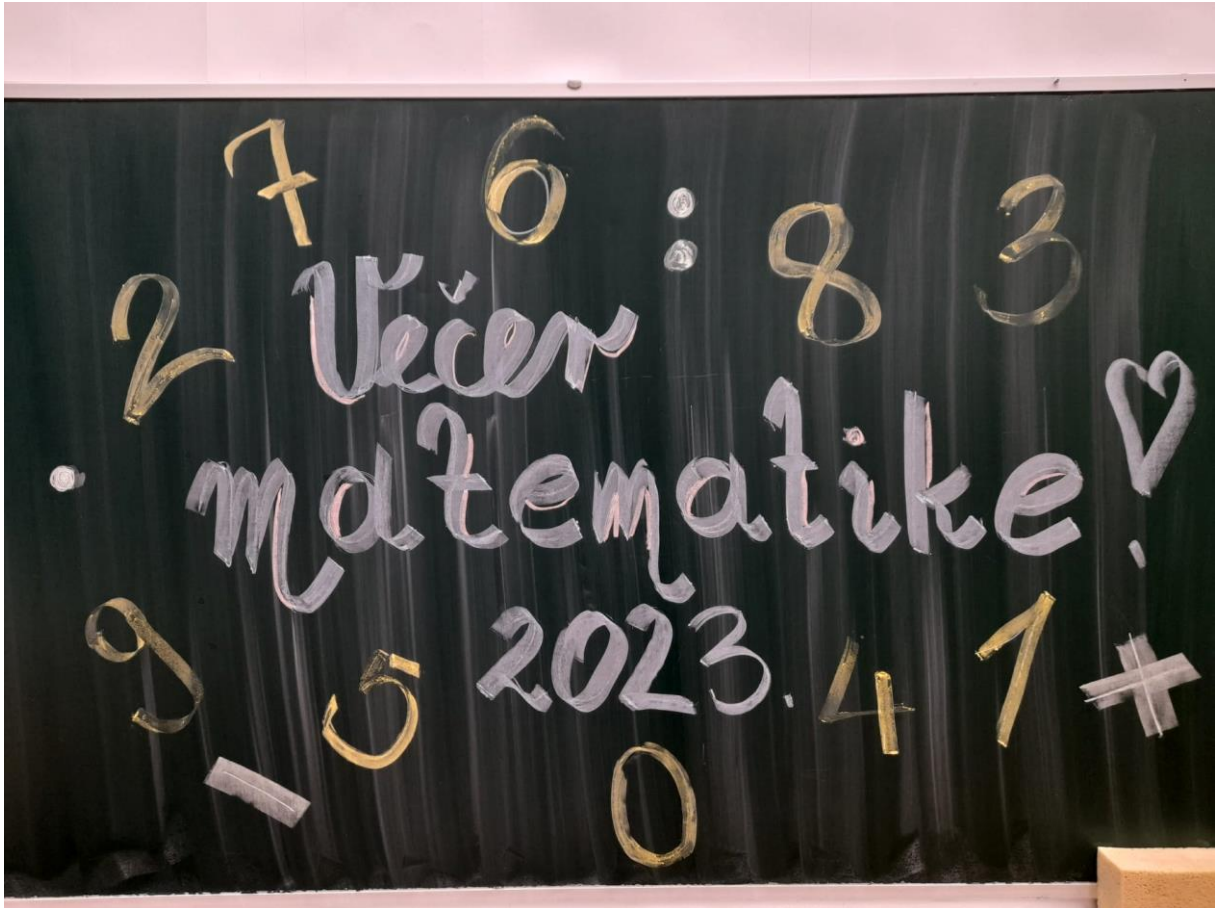 7 6 : 8 3
2
Večer
· matematike!
2023.
9 5 4 1 +
-
0